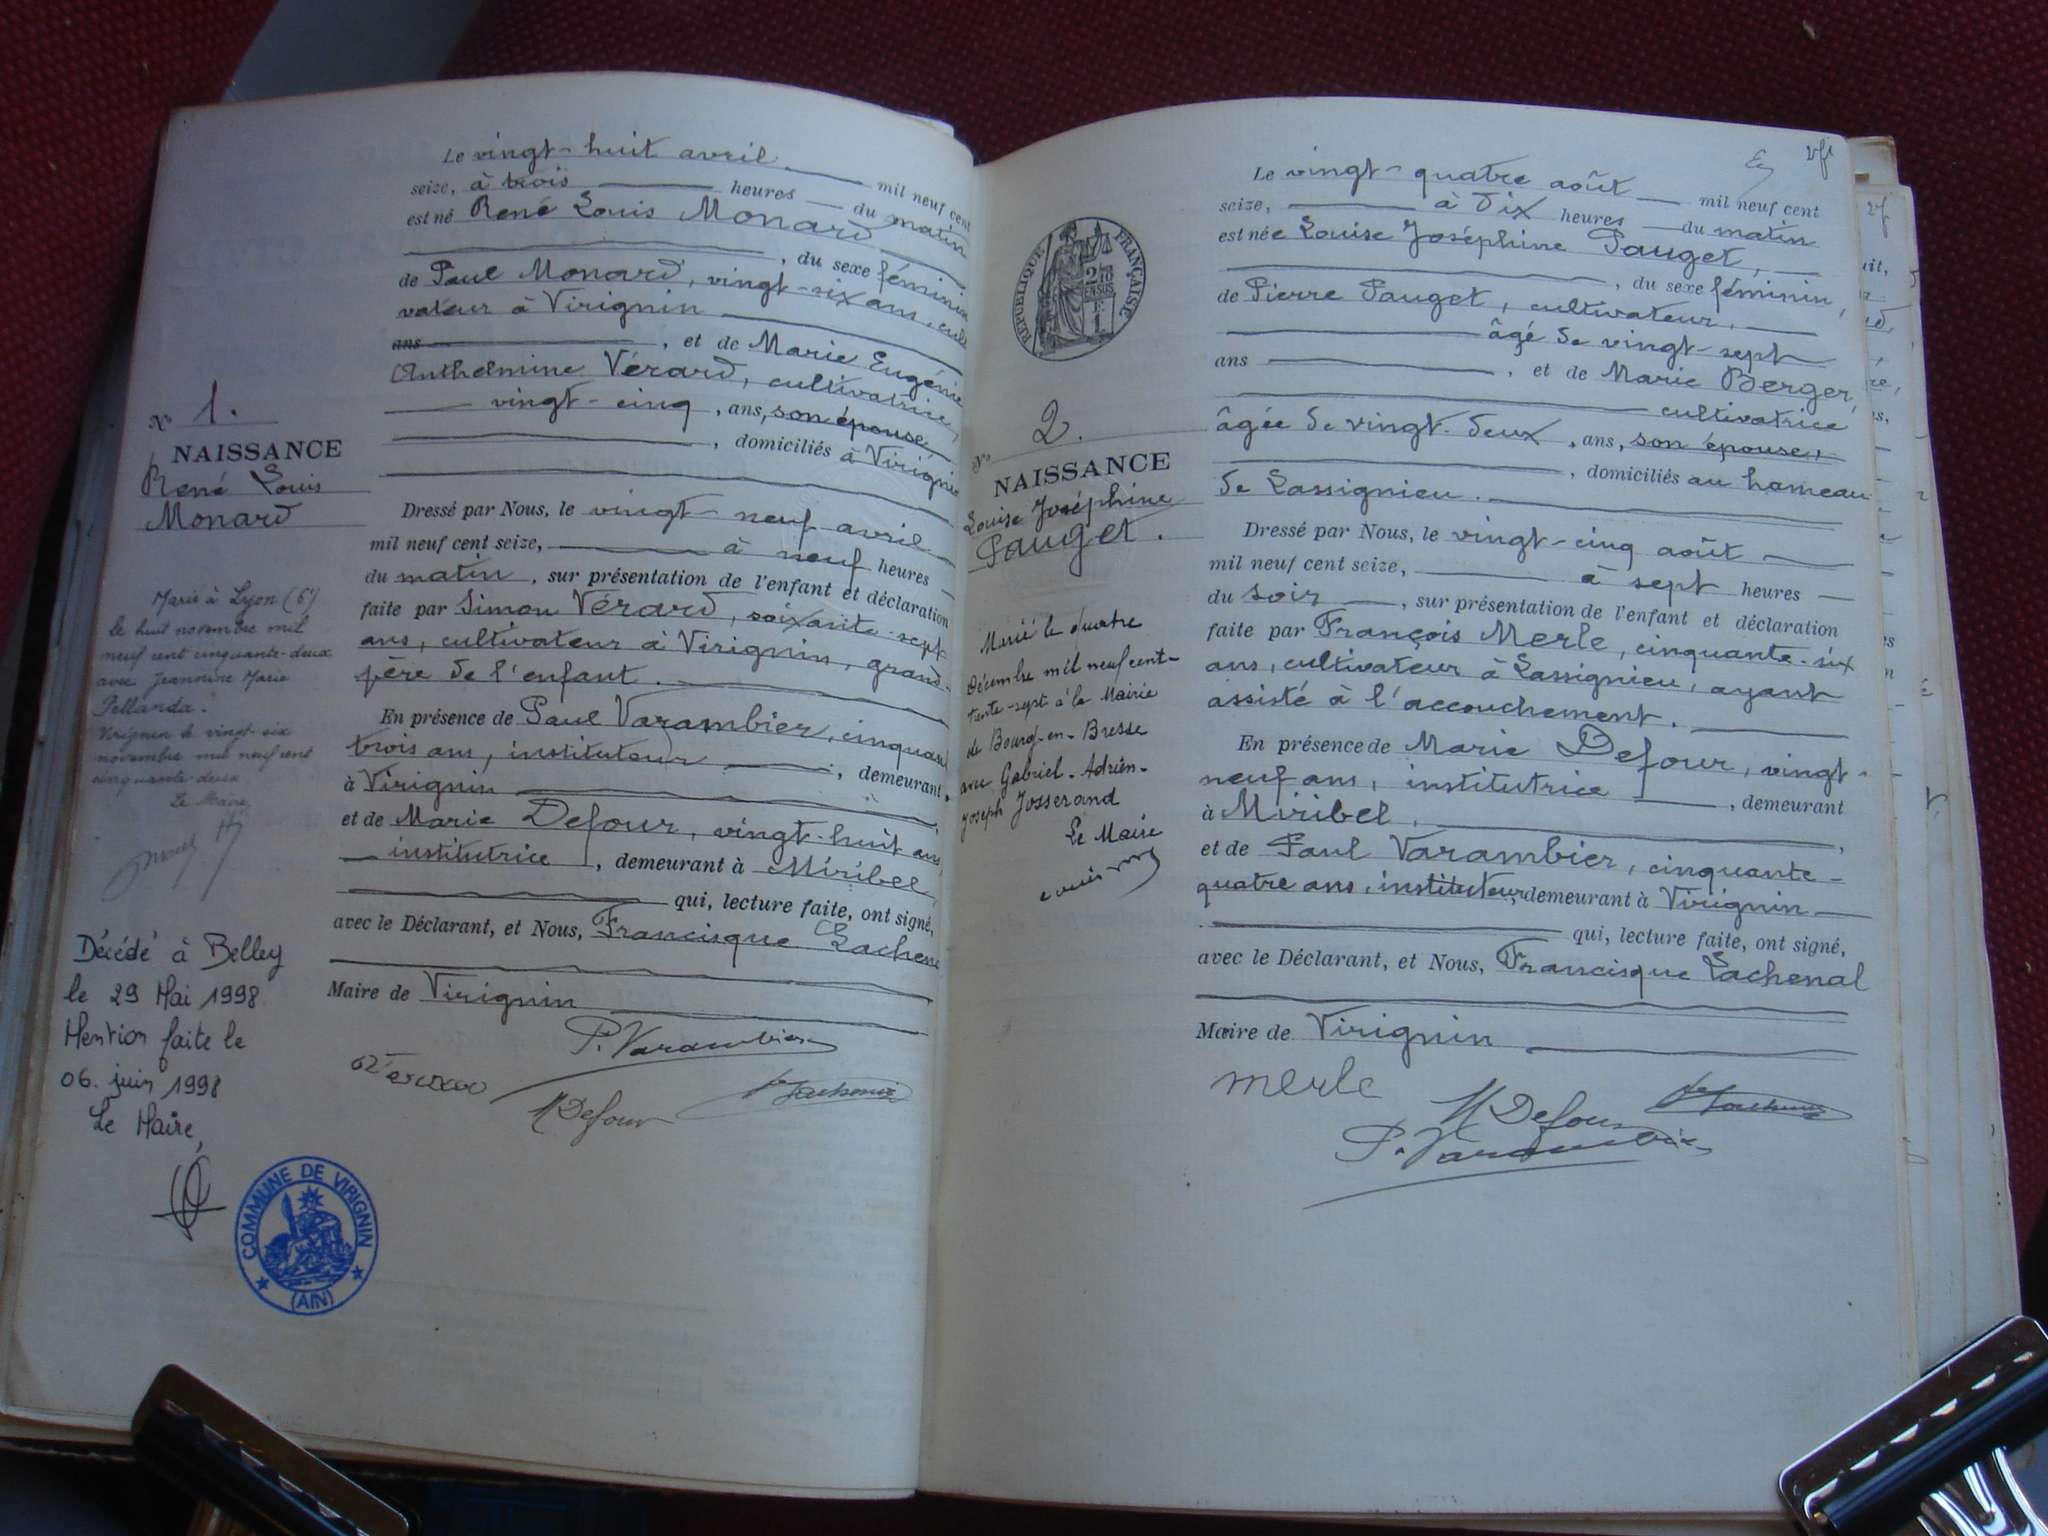 Le vingt-huit avril mil neuf cent
seize, à trois heures du matin
est né René Louis Monard
, du sexe féminin
de Paul Monard, vingt-six ans, culti
vateur à Virignin
ans , et de Marie Eugénie
Anthelmine Vérard, cultivatrice,
vingt-cinq , ans, son épouse,
, domiciliés à Virignin
Dressé par Nous, le vingt-neuf avril
mil neuf cent seize, à neuf heures
du matin , sur présentation de l'enfant et déclaration
faite par Simon Vérard, soixante-sept
ans, cultivateur à Virignin, grand-
père de l'enfant.
En présence de Paul Varambier, cinquante
trois ans, instituteur , demeurant
à Virignin ,
et de Marie Defour, vingt-huit ans,
institutrice , demeurant à Miribel,
qui, lecture faite, ont signé,
avec le Déclarant, et Nous, Francisque Lachenal
Maire de Virignin
P. Varambier
Vérard
M Defour
Lachenal
N° 1.
NAISSANCE
René Louis
Monard
Marié à Lyon (6e)
le huit novembre mil
neuf cent cinquante-deux
avec Jeannine Marie
Pellanda.
Virignin le vingt-six
novembre mil neuf cent
cinquante-deux
Le Maire
Décédé à Belley
le 29 Mai 1998
Mention faite le
06. juin 1998
Le Maire,
COMMUNE DE VIRIGNIN
(AIN)
vfr
Le vingt-quatre août mil neuf cent
seize, à Dix heures du matin
est née Louise Joséphine Pauget,
, du sexe féminin,
de Pierre Pauget, cultivateur,
âgé de vingt-sept
ans , et de Marie Berger,
cultivatrice
âgée de vingt-deux , ans, son épouse,
, domiciliés au hameau
de Lassignieu.
Dressé par Nous, le vingt-cinq août
mil neuf cent seize, à sept heures
du soir , sur présentation de l'enfant et déclaration
faite par François Merle, cinquante-six
ans, cultivateur à Lassignieu, ayant
assisté à l'accouchement.
En présence de Marie Defour, vingt-
neuf ans, institutrice , demeurant
à Miribel, ,
et de Paul Varambier, cinquante-
quatre ans, instituteur, demeurant à Virignin
qui, lecture faite, ont signé,
avec le Déclarant, et Nous, Francisque Lachenal
Maire de Virignin
merle
M Defour
Lachenal
P. Varambier
RÉPUBLIQUE FRANÇAISE
N° 2.
NAISSANCE
Louise Joséphine
Pauget.
Mariée le quatre
Décembre mil neuf cent-
trente-sept à la Mairie
de Bourg-en-Bresse
avec Gabriel-Adrien-
Joseph Josserand
Le Maire